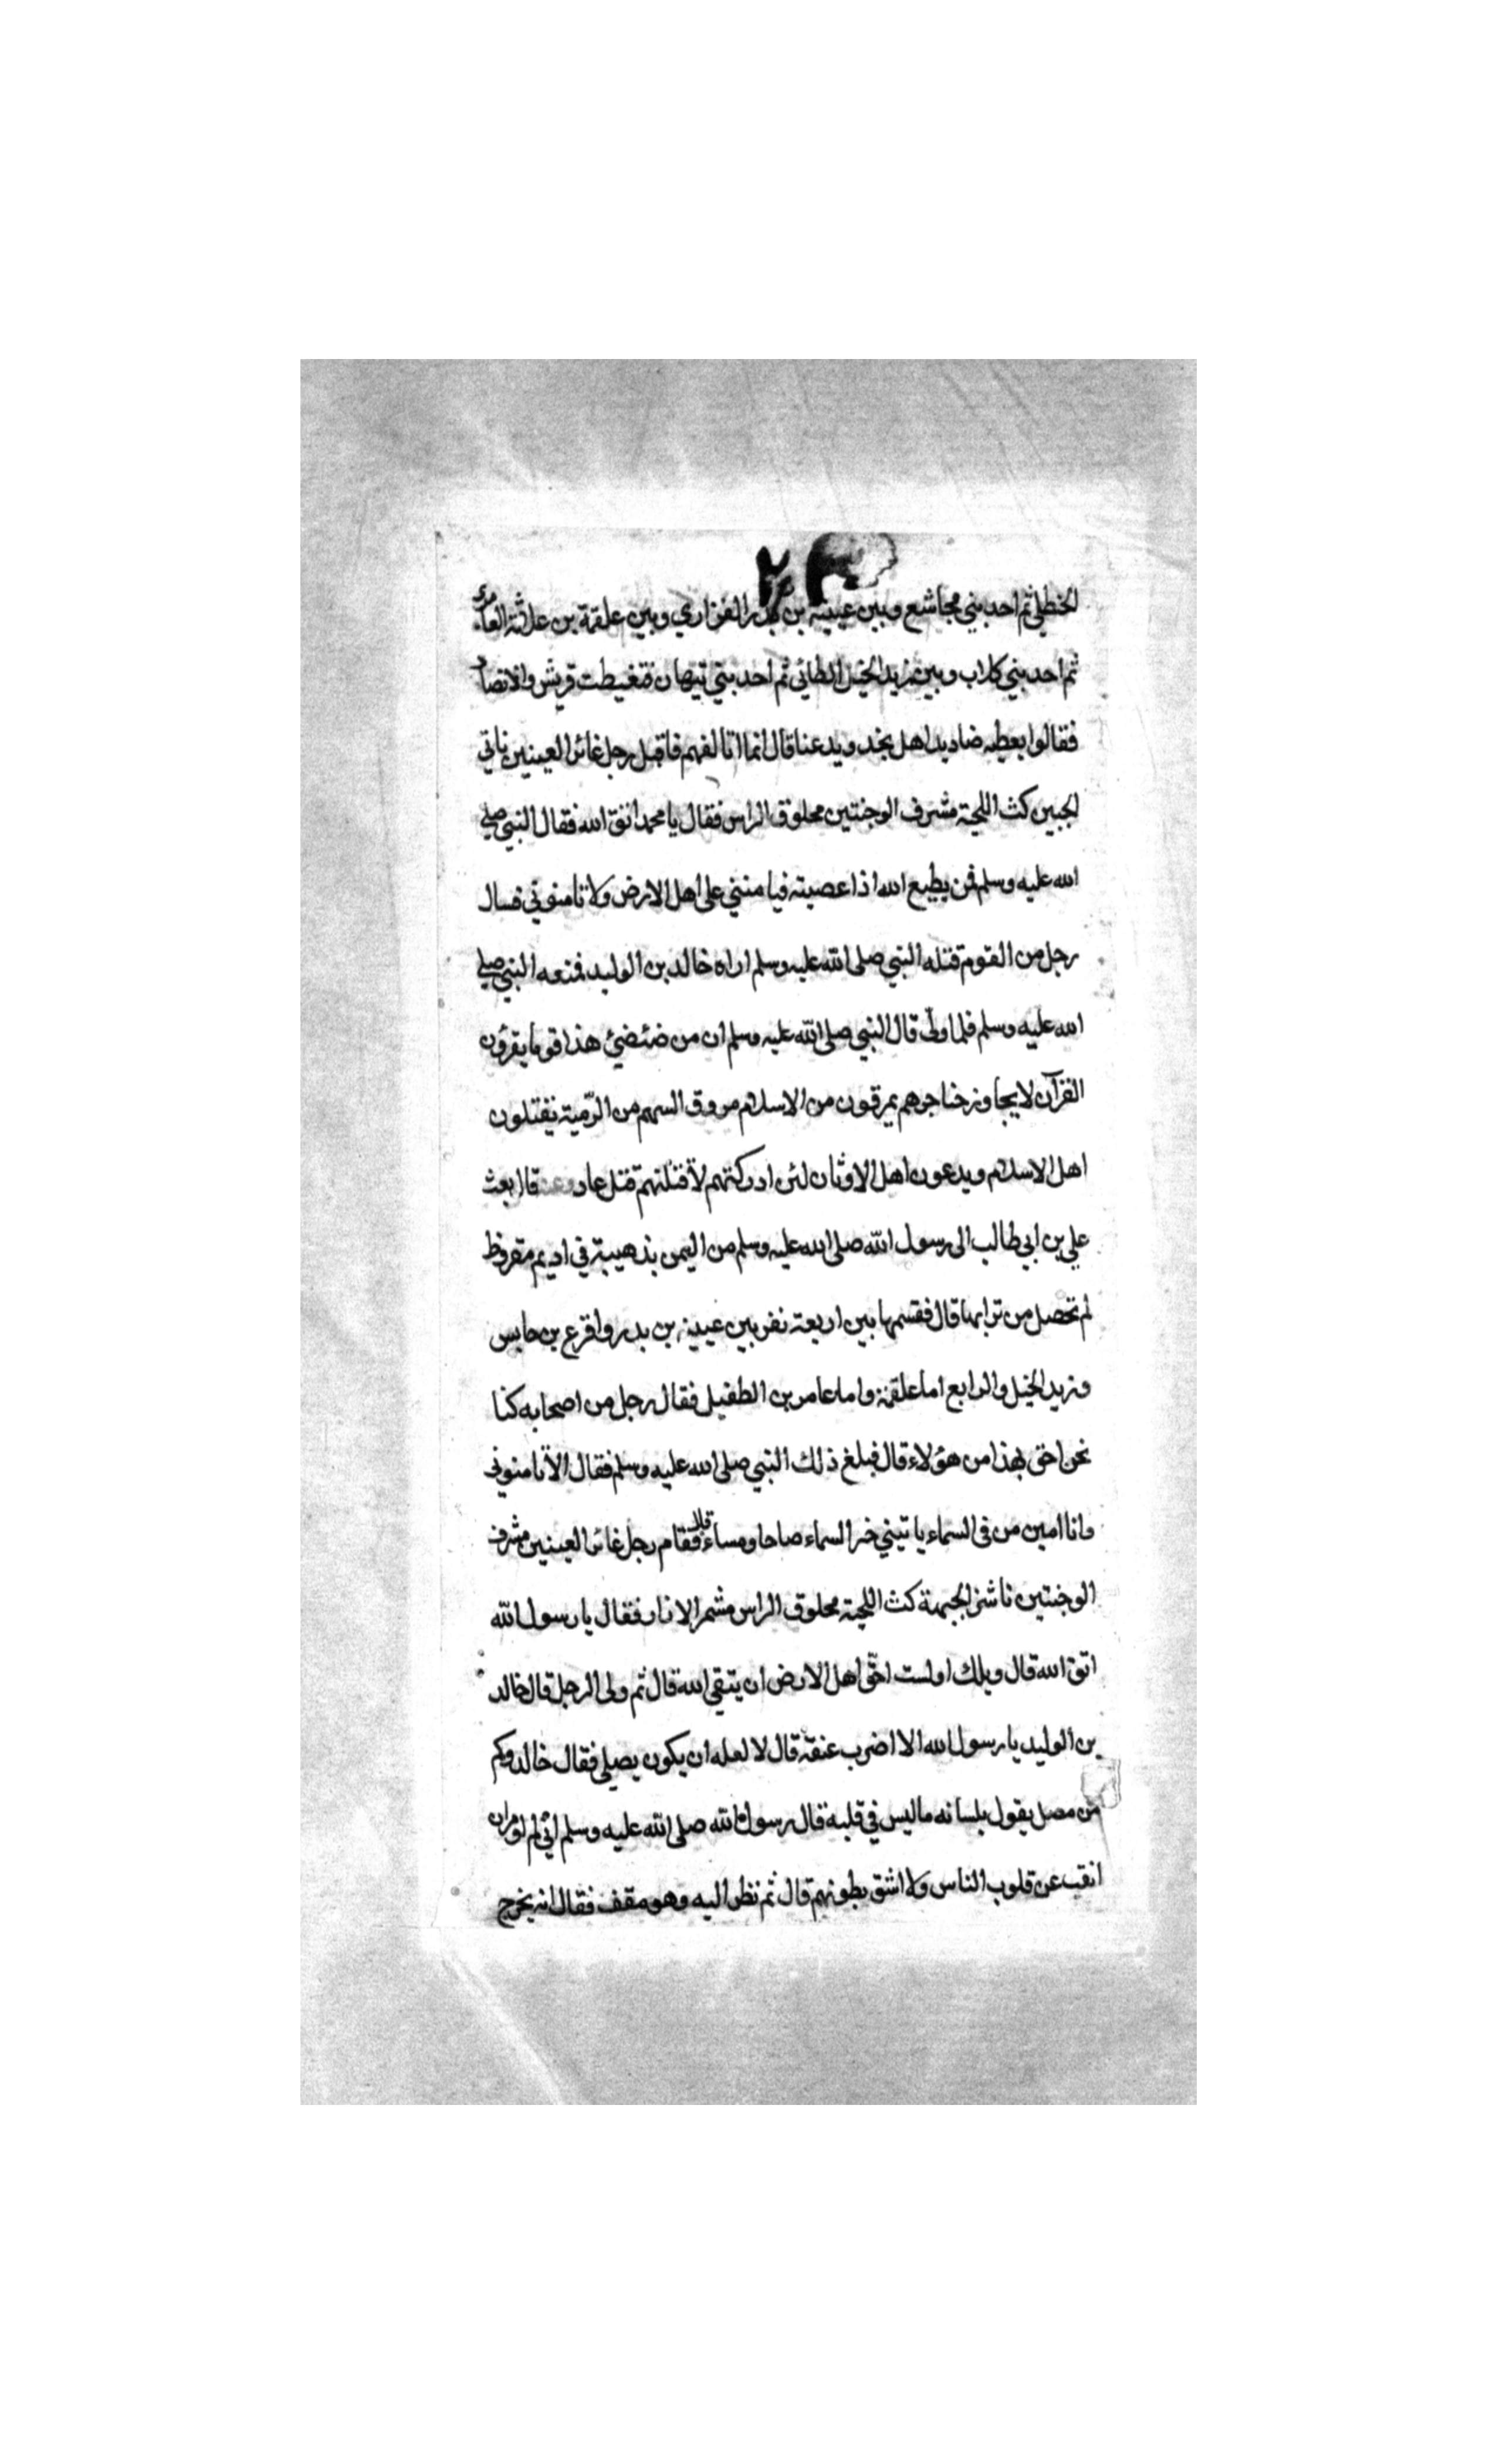 الحنظلي ثم احد بني مجاشع وبين عيينة بن بدر الفزاري وبين علقمة بن علاثة العامري
ثم احد بني كلاب وبين زيد الخيل الطائي ثم احد بني تيهان فتغيطت قريش والانصار
فقالوا يعطيه ضاديد اهل نجد ويدعنا قال انما اتالفهم فاقبل رجل غائر العينين ناتي
الجبين كث اللحية مشرف الوجنتين محلوق الراس فقال يا محمد اتق الله فقال النبي صلى
الله عليه وسلم فمن يطيع الله اذا عصيته فيامنني على اهل الارض ولا تامنوني فسال
رجل من القوم قتله النبي صلى الله عليه وسلم اراه خالد بن الوليد فمنعه النبي صلى
الله عليه وسلم فلما ولّى قال النبي صلى الله عليه وسلم ان من ضئضئ هذا قوما يقرؤن
القرآن لا يجاوز حناجرهم يمرقون من الاسلام مروق السهم من الرّمية يقتلون
اهل الاسلام ويدعون اهل الاوثان لئن ادركتهم لاقتلنهم قتل عاد قال بعث
علي بن ابي طالب الى رسول الله صلى الله عليه وسلم من اليمن بذهيبة في اديم مقروظ
لم تحصل من ترابها قال فقسمها بين اربعة نفر بين عيينة بن بدر واقرع بن حابس
وزيد الخيل والرابع اما علقمة واما عامر بن الطفيل فقال رجل من اصحابه كنا
نحن احق بهذا من هؤلاء قال فبلغ ذلك النبي صلى الله عليه وسلم فقال الا تامنوني
وانا امين من في السماء ياتيني خبر السماء صباحا ومساء قال فقام رجل غائر العينين مشرف
الوجنتين ناشز الجبهة كث اللحية محلوق الراس مشمر الازار فقال يا رسول الله
اتق الله قال ويلك اولست احقّ اهل الارض ان يتقي الله قال ثم ولى الرجل قال خالد
بن الوليد يا رسول الله الا اضرب عنقه قال لا لعله ان يكون يصلي فقال خالد وكم
من مصل يقول بلسانه ماليس في قلبه قال رسول الله صلى الله عليه وسلم اني لم اومر ان
انقب عن قلوب الناس ولا اشق بطونهم قال ثم نظر اليه وهو مقف فقال انه يخرج